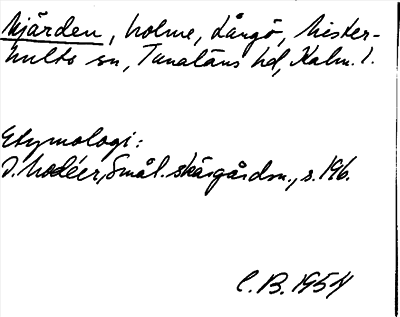 Mjärden, holme, Långö, Mister-
hults sn, Tunaläns hd, Kalm. l.
Etymologi:
I. Modéer, Smål. skärgårdsn., s. 196.
C. B. 1954